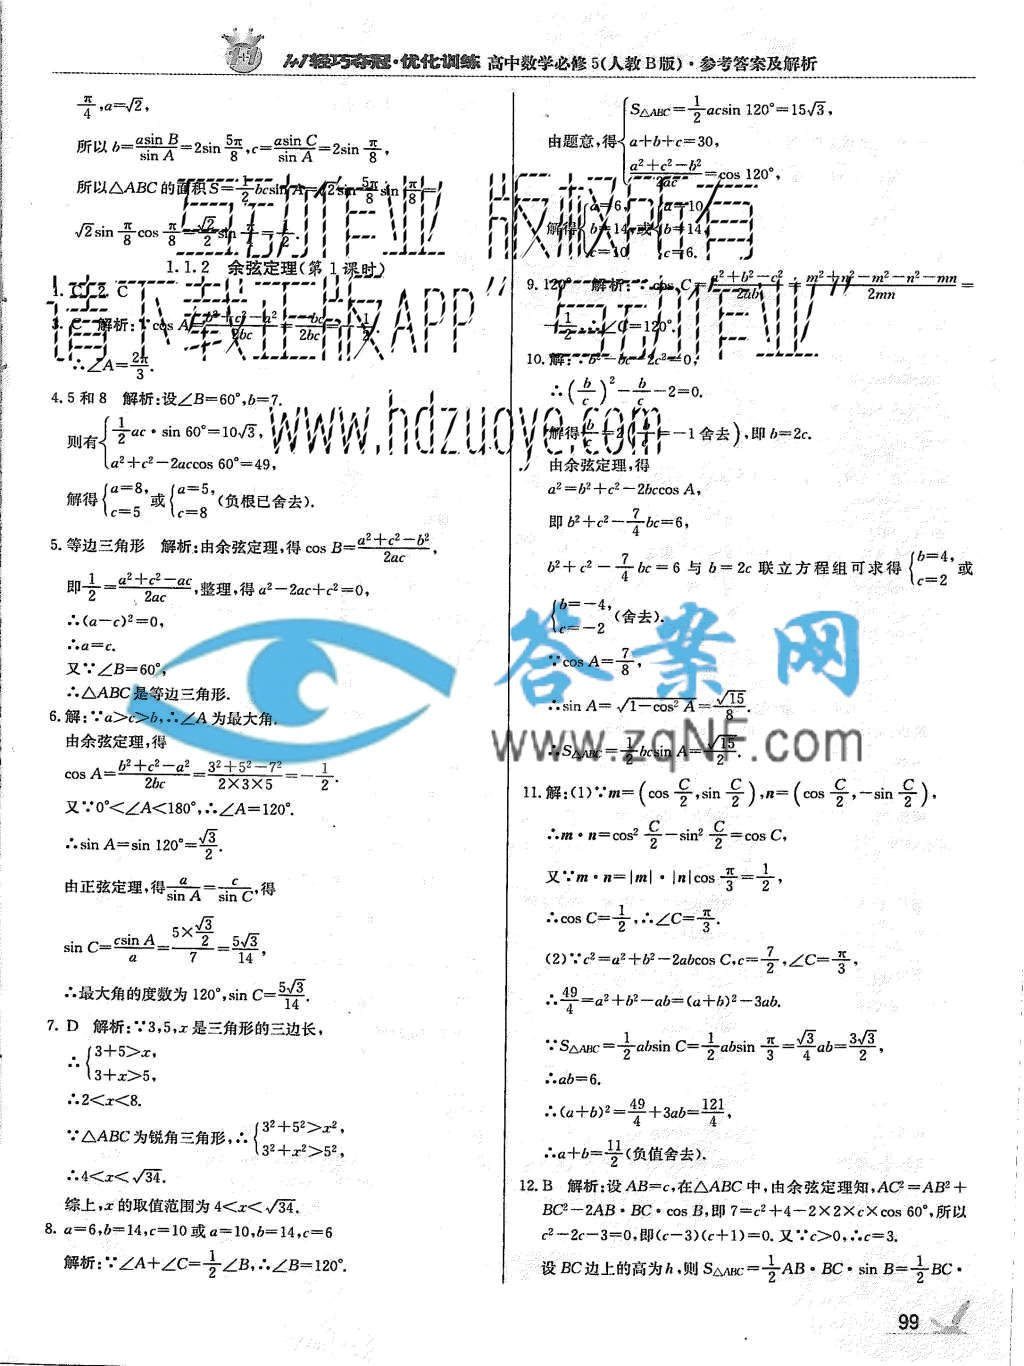 1+1轻巧夺冠·优化训练 高中数学必修5(人教B版)·参考答案及解析
π/4,a=√2,
所以 b=asin B/sin A=2sin 5π/8,c=asin C/sin A=2sin π/8,
所以△ABC的面积 S=1/2bcsin A=√2sin 5π/8 sin π/8=
√2sin π/8cos π/8=√2/2sin π/4=1/2.
1.1.2 余弦定理(第1课时)
1. C 2. C
3. C 解析:∵cos A=b²+c²-a²/2bc=-bc/2bc=-1/2.
∴∠A=2π/3.
4. 5和8 解析:设∠B=60°,b=7.
则有{1/2ac·sin 60°=10√3,
a²+c²-2accos 60°=49,
解得{a=8,c=5 或{a=5,c=8 (负根已舍去).
5. 等边三角形 解析:由余弦定理,得 cos B=a²+c²-b²/2ac,
即1/2=a²+c²-ac/2ac,整理,得 a²-2ac+c²=0,
∴(a-c)²=0,
∴a=c.
又∵∠B=60°,
∴△ABC是等边三角形.
6. 解:∵a>c>b,∴∠A为最大角.
由余弦定理,得
cos A=b²+c²-a²/2bc=3²+5²-7²/2×3×5=-1/2.
又∵0°<∠A<180°,∴∠A=120°.
∴sin A=sin 120°=√3/2.
由正弦定理,得a/sin A=c/sin C,得
sin C=csin A/a=5×√3/2/7=5√3/14,
∴最大角的度数为120°,sin C=5√3/14.
7. D 解析:∵3,5,x是三角形的三边长,
∴{3+5>x,
3+x>5,
∴2<x<8.
∵△ABC为锐角三角形,∴{3²+5²>x²,
3²+x²>5²,
∴4<x<√34.
综上,x的取值范围为4<x<√34.
8. a=6,b=14,c=10或a=10,b=14,c=6
解析:∵∠A+∠C=1/2∠B,∴∠B=120°.
由题意,得{S△ABC=1/2acsin 120°=15√3,
a+b+c=30,
a²+c²-b²/2ac=cos 120°,
解得{a=6,b=14,c=10 或{a=10,b=14,c=6.
9. 120° 解析:∵cos C=a²+b²-c²/2ab=m²+n²-m²-n²-mn/2mn=
-1/2,∴∠C=120°.
10. 解:∵b²-bc-2c²=0,
∴(b/c)²-b/c-2=0.
解得b/c=2(b/c=-1舍去),即b=2c.
由余弦定理,得
a²=b²+c²-2bccos A,
即b²+c²-7/4bc=6,
b²+c²-7/4bc=6与b=2c联立方程组可求得{b=4,c=2 或
{b=-4,c=-2 (舍去).
∵cos A=7/8,
∴sin A=√1-cos² A=√15/8.
∴S△ABC=1/2bcsin A=√15/2.
11. 解:(1)∵m=(cos C/2,sin C/2),n=(cos C/2,-sin C/2),
∴m·n=cos² C/2-sin² C/2=cos C,
又∵m·n=|m|·|n|cos π/3=1/2,
∴cos C=1/2,∴∠C=π/3.
(2)∵c²=a²+b²-2abcos C,c=7/2,∠C=π/3,
∴49/4=a²+b²-ab=(a+b)²-3ab.
∵S△ABC=1/2absin C=1/2absin π/3=√3/4ab=3√3/2,
∴ab=6.
∴(a+b)²=49/4+3ab=121/4,
∴a+b=11/2(负值舍去).
12. B 解析:设AB=c,在△ABC中,由余弦定理知,AC²=AB²+
BC²-2AB·BC·cos B,即7=c²+4-2×2×c×cos 60°,所以
c²-2c-3=0,即(c-3)(c+1)=0.又∵c>0,∴c=3.
设BC边上的高为h,则S△ABC=1/2AB·BC·sin B=1/2BC·
99
与动作业 版权所有
请下载正版APP“与动作业
www.hdzuoye.com
答案网
www.zqNF.com